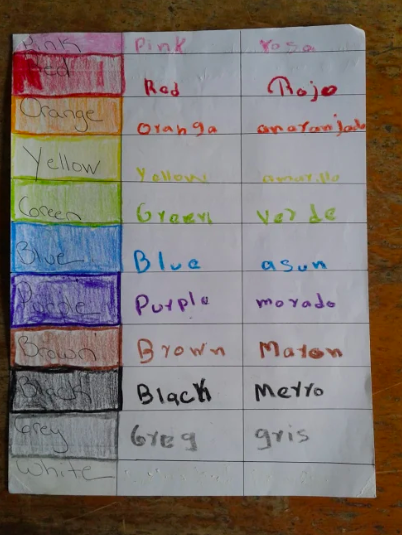 Pink Pink rosa
Red Red Rojo
Orange Oranga anaranjado
Yellow Yellow amarillo
Green Green verde
Blue Blue asun
Purple Purplo morado
Brown Brown Maron
Black Black Merro
Grey Greg gris
White